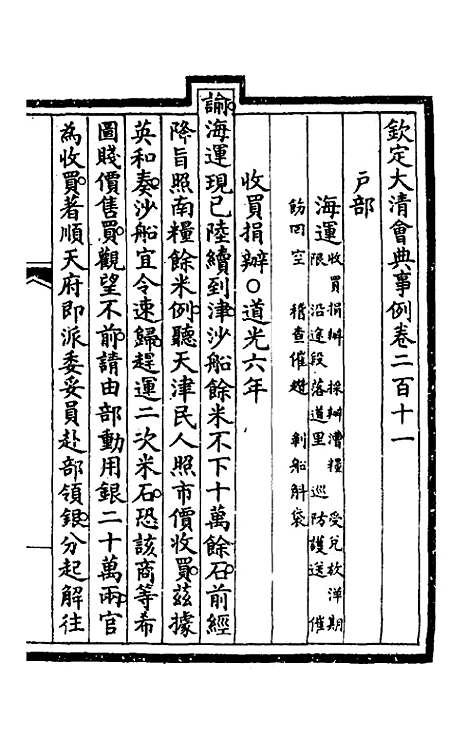 欽定大清會典事例卷二百十一
戶部
海運收買捐辦 採辦漕糧 受兌放洋期
限 沿途段落道里 巡防護送 催
飭回空 稽查催趲 剝船斛袋
收買捐辦○道光六年
諭海運現已陸續到津沙船餘米不下十萬餘石前經
降旨照南糧餘米例聽天津民人照市價收買茲據
英和奏沙船宜令速歸趕運二次米石恐該商等希
圖賤價售買觀望不前請由部動用銀二十萬兩官
為收買著順天府即派委妥員赴部領銀分起解往